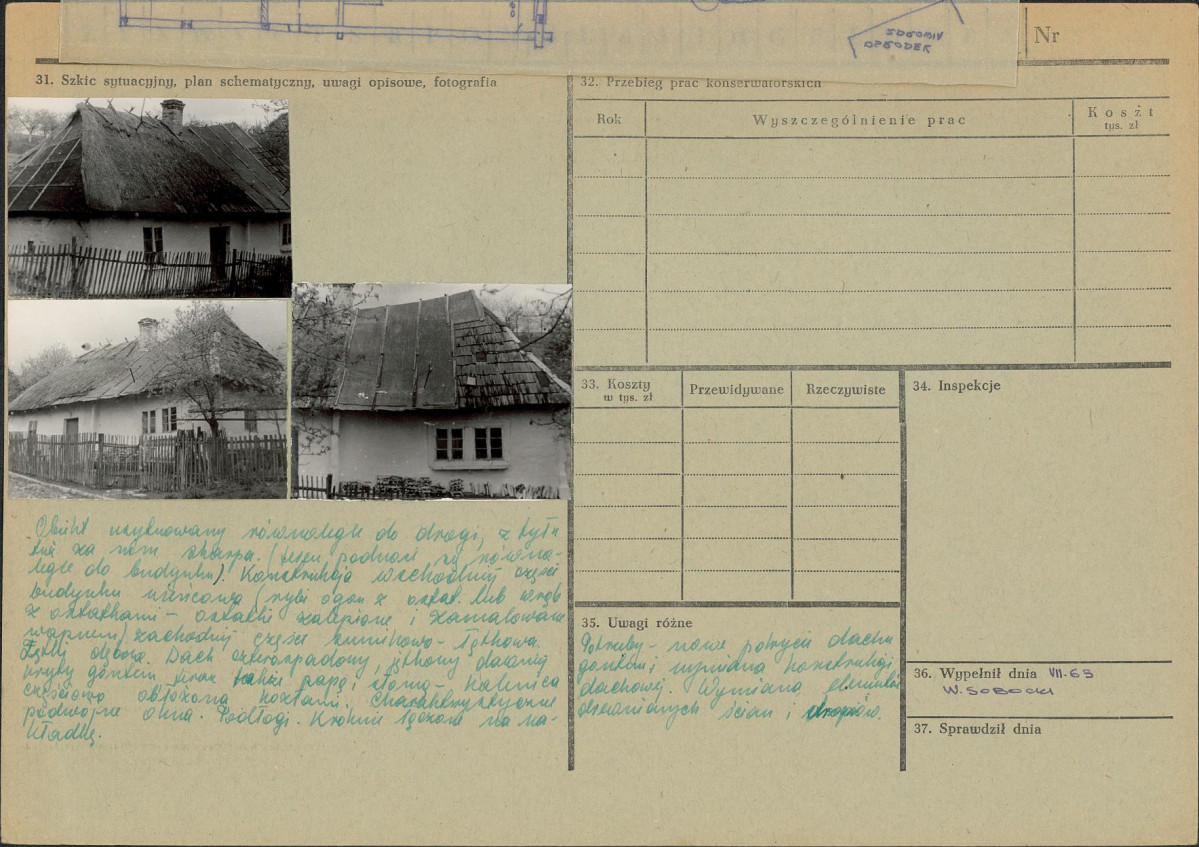 ZDROMIN
OGRODEK
Nr
31. Szkic sytuacyjny, plan schematyczny, uwagi opisowe, fotografia
Obiekt usytuowany równolegle do drogi, z tyłu
tuż za nim skarpa. (teren podnosi się równo-
legle do budynku). Konstrukcja wschodniej części
budynku wieńcowa (rybi ogon z ostat. lub wrąb
z ostatkami - ostatki zalepione i zamalowane
wapnem) zachodniej części sumikowo-łątkowa.
Dach czterospadowy, dawniej
kryty gontem, teraz także papą i słomą - kalenica
częściowo obłożona kozłami. Charakterystyczne
podwójne okna. Podłogi. Krokwie łączone na na-
kładkę.
32. Przebieg prac konserwatorskich
Rok
Wyszczególnienie prac
Koszt
tys. zł
33. Koszty
w tys. zł
Przewidywane
Rzeczywiste
34. Inspekcje
35. Uwagi różne
Potrzeby - nowe pokrycie dachu
gontem i wymiana konstrukcji
dachowej. Wymiana elementów
drewnianych ścian i stropów.
36. Wypełnił dnia VII.63
W. SOBOCKI
37. Sprawdził dnia